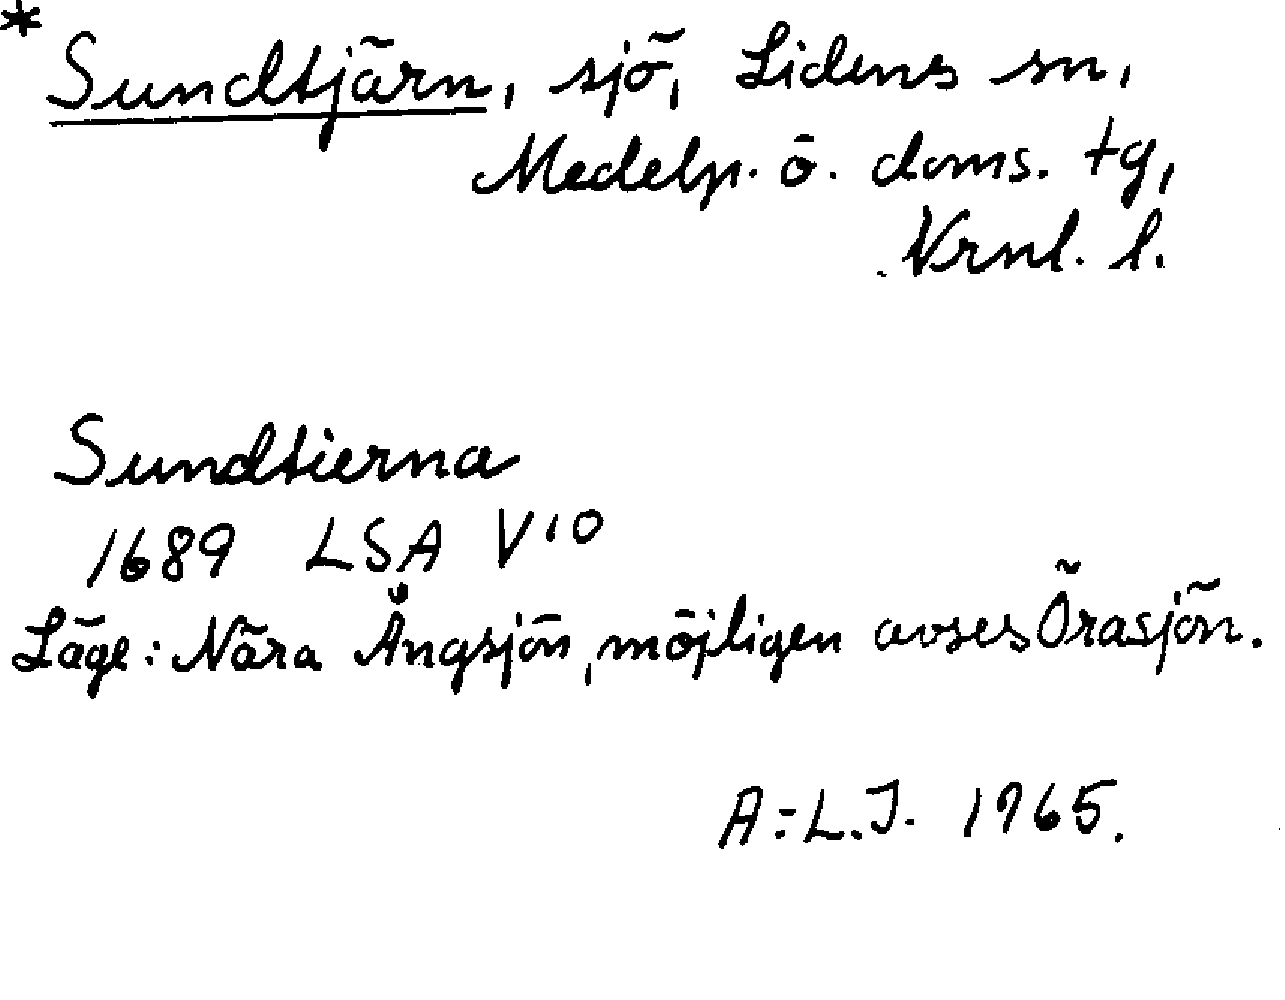 * Sundtjärn, sjö, Lidens sn,
Medelp. ö. doms. tg,
Vrnl. l.
Sundtierna
1689 LSA V10
Läge: Nära Ångsjön, möjligen avses Örasjön.
A-L.J. 1965.